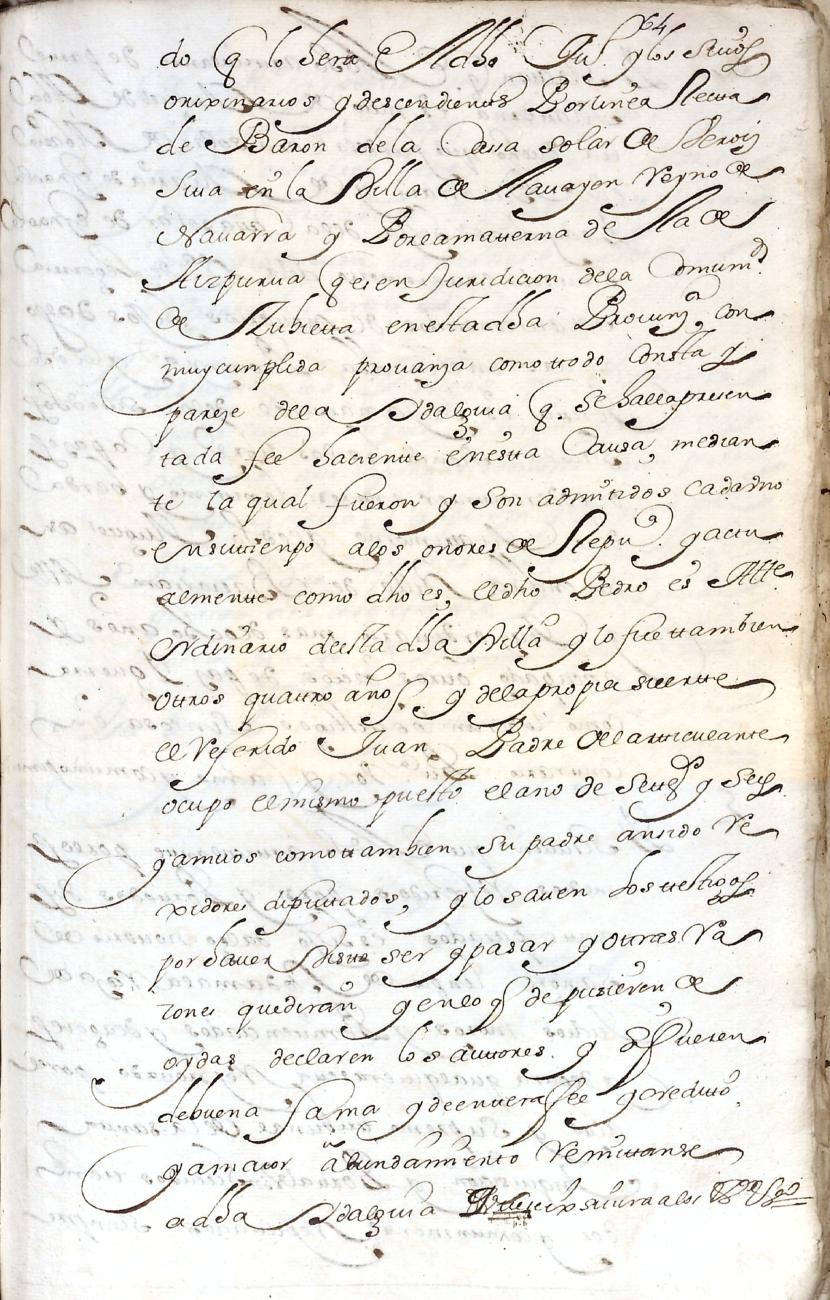 64
do q lo hera El dho Ju.º y los suios
orixinarios y descendientes Por linea Recta
de Baron de la Cassa solar de
Sita en la Villa de Reyno de
Navarra y Por la materna de la de
Aizpurua q es en Juridicion de la Comun.d
de Aubieta en esta dha Provinª, con
muy cumplida provanza como todo consta y
pareze de la Ydalguia q. se halla presen
tada fee haciente en esta Causa, median
te la qual fueron y son admitidos cada uno
en su tienpo a los onores de Repuª. y actu
almente como dho es, el dho Pedro es Alle
Ordinario de esta dha Villa y lo fue tambien
otros quatro años y de la propia suerte
el Referido Juan, Padre del articulante
ocupo el mismo puesto el año de Setteº y Seis
y amvos como tambien su padre an sido Re
xidores diputados, y lo saven los testigos
por haver Visto ser y pasar y otras Ra
zones que diran y en lo q de pusieren de
oydas declaren los autores y si fueren
de buena fama y de entera fee y credito,
y a maior abundamiento Remitanse
a dha Ydalguia